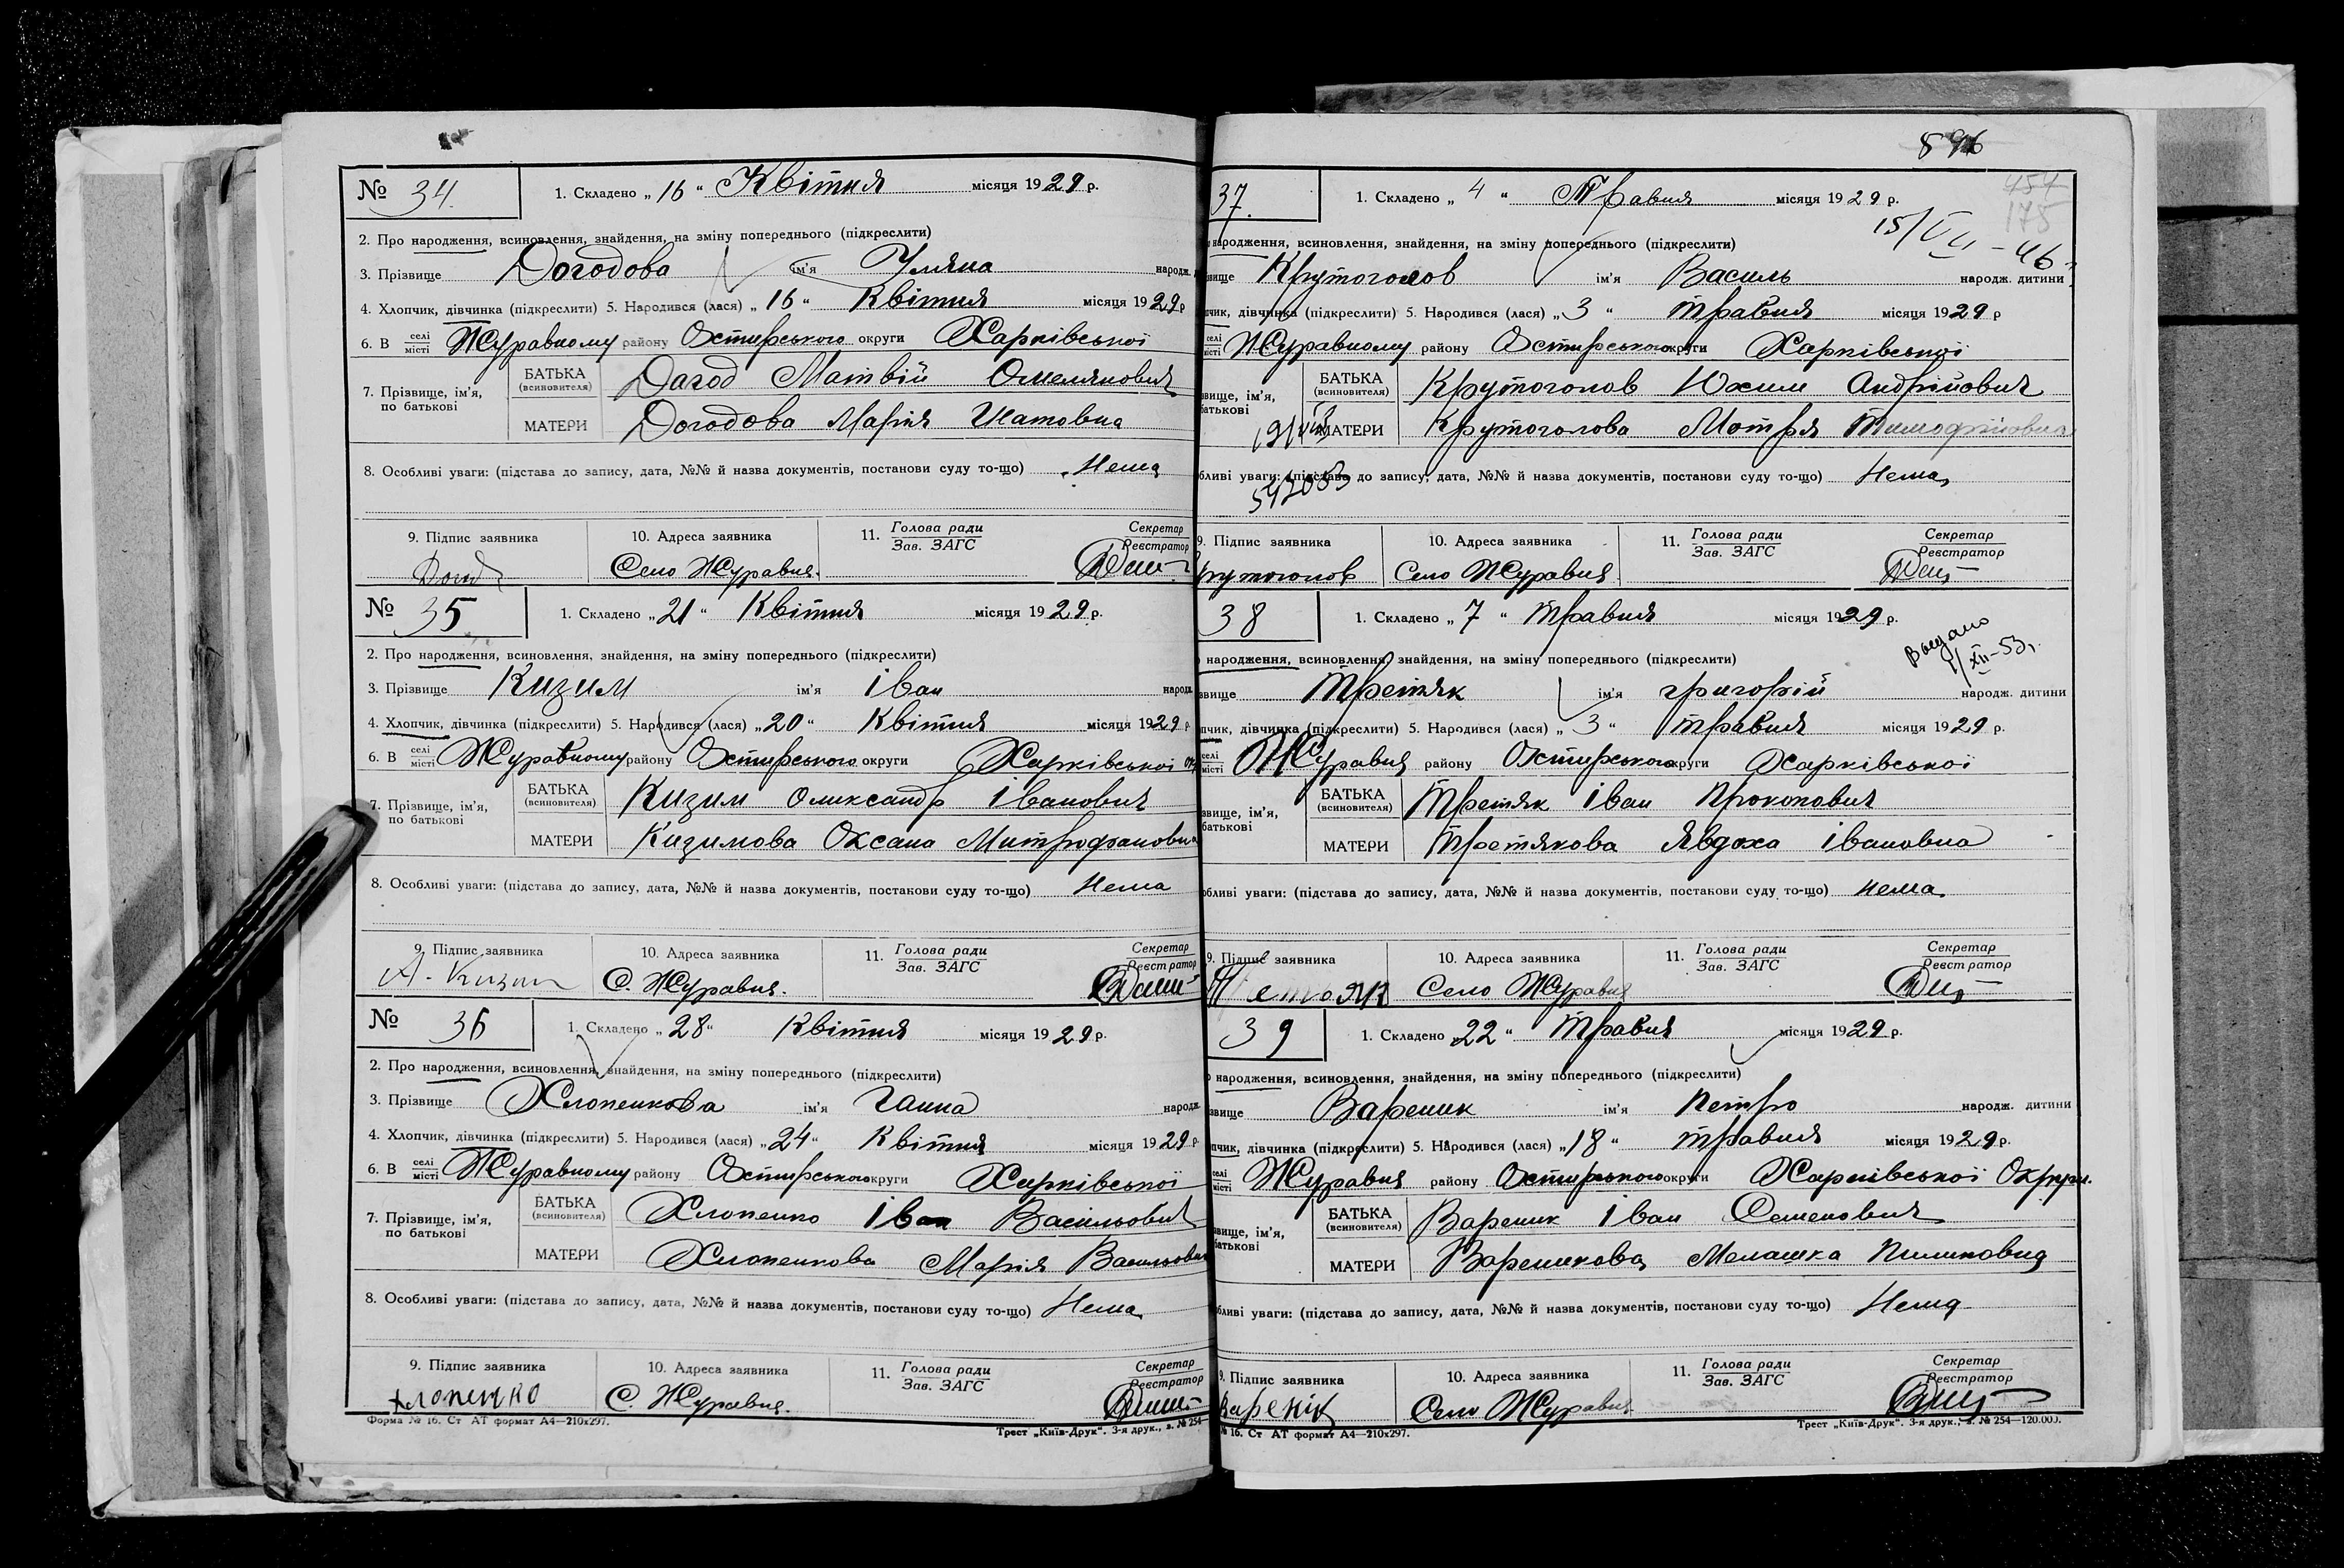 № 34. 1. Складено „ 16 “ Квітня місяця 1929 р.
2. Про народження, всиновлення, знайдення, на зміну попереднього (підкреслити)
3. Прізвище Догодова ім'я Уляна народж.
4. Хлопчик, дівчинка (підкреслити) 5. Народився (лася) „ 16 “ Квітня місяця 1929 р
6. В селі місті Журавному району Охтирського округи Харківської
7. Прізвище, ім'я, по батькові БАТЬКА (всиновителя) Дагод Матвій Омелянович
МАТЕРИ Догодова Марія Ігнатовна
8. Особливі уваги: (підстава до запису, дата, №№ й назва документів, постанови суду то-що) Нема
9. Підпис заявника 10. Адреса заявника 11. Голова ради Зав. ЗАГС Секретар Реєстратор
Село Журавня.
№ 35 1. Складено „ 21 “ Квітня місяця 1929 р.
2. Про народження, всиновлення, знайдення, на зміну попереднього (підкреслити)
3. Прізвище Кизим ім'я Іван народж.
4. Хлопчик, дівчинка (підкреслити) 5. Народився (лася) „ 20 “ Квітня місяця 1929 р
6. В селі місті Журавному району Охтирського округи Харківської
7. Прізвище, ім'я, по батькові БАТЬКА (всиновителя) Кизим Олександр Іванович
МАТЕРИ Кизимова Оксана Митрофановна
8. Особливі уваги: (підстава до запису, дата, №№ й назва документів, постанови суду то-що) Нема
9. Підпис заявника 10. Адреса заявника 11. Голова ради Зав. ЗАГС Секретар Реєстратор
А. Кизим С. Журавня.
№ 36 1. Складено „ 28 “ Квітня місяця 1929 р.
2. Про народження, всиновлення, знайдення, на зміну попереднього (підкреслити)
3. Прізвище Хлопенкова ім'я Ганна народж.
4. Хлопчик, дівчинка (підкреслити) 5. Народився (лася) „ 24 “ Квітня місяця 1929 р.
6. В селі місті Журавному району Охтирського округи Харківської
7. Прізвище, ім'я, по батькові БАТЬКА (всиновителя) Хлопенко Іван Васильович
МАТЕРИ Хлопенкова Марія Васильовна
8. Особливі уваги: (підстава до запису, дата, №№ й назва документів, постанови суду то-що) Нема
9. Підпис заявника 10. Адреса заявника 11. Голова ради Зав. ЗАГС Секретар Реєстратор
Хлопенко С. Журавня.
Форма № 16. Ст АТ формат А4—210х297. Трест „Київ-Друк“. 3-я друк., з. № 254
896
454
175
37. 1. Складено „ 4 “ Травня місяця 1929 р.
15/VII-46
народження, всиновлення, знайдення, на зміну попереднього (підкреслити)
вище Крутоголов ім'я Василь народж. дитини
чик, дівчинка (підкреслити) 5. Народився (лася) „ 3 “ травня місяця 1929 р
селі місті Журавному району Охтирського округи Харківської
вище, ім'я, батькові БАТЬКА (всиновителя) Крутоголов Юхим Андрійович
МАТЕРИ Крутоголова Мотря Тимофіївна
бливі уваги: (підстава до запису, дата, №№ й назва документів, постанови суду то-що) Нема
592083
9. Підпис заявника 10. Адреса заявника 11. Голова ради Зав. ЗАГС Секретар Реєстратор
Крутоголов Село Журавня
38 1. Складено „ 7 “ Травня місяця 1929 р.
Выдано
1/XII-53.
народження, всиновлення, знайдення, на зміну попереднього (підкреслити)
вище Третяк ім'я григорій народж. дитини
пчик, дівчинка (підкреслити) 5. Народився (лася) „ 3 “ травня місяця 1929 р.
селі місті Журавня району Охтирського округи Харківської
вище, ім'я, батькові БАТЬКА (всиновителя) Третяк Іван Прокопович
МАТЕРИ Третякова Явдоха Івановна
обливі уваги: (підстава до запису, дата, №№ й назва документів, постанови суду то-що) нема
9. Підпис заявника 10. Адреса заявника 11. Голова ради Зав. ЗАГС Секретар Реєстратор
Село Журавня
39 1. Складено „ 22 “ Травня місяця 1929 р.
народження, всиновлення, знайдення, на зміну попереднього (підкреслити)
вище Вареник ім'я Петро народж. дитини
пчик, дівчинка (підкреслити) 5. Народився (лася) „ 18 “ травня місяця 1929 р.
селі місті Журавня району Охтирського округи Харківської Округи.
вище, ім'я, батькові БАТЬКА (всиновителя) Вареник Іван Семенович
МАТЕРИ Вареникова Мелашка Пилиповна
бливі уваги: (підстава до запису, дата, №№ й назва документів, постанови суду то-що) Нема
9. Підпис заявника 10. Адреса заявника 11. Голова ради Зав. ЗАГС Секретар Реєстратор
Варенік Село Журавня
№ 16. Ст АТ формат А4—210х297. Трест „Київ-Друк“. 3-я друк., з. № 254—120.000.